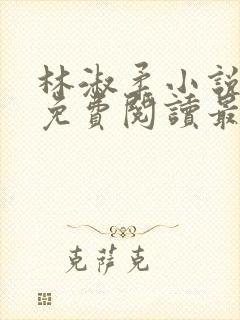 林淑柔小說
免費閱讀最
克薩克